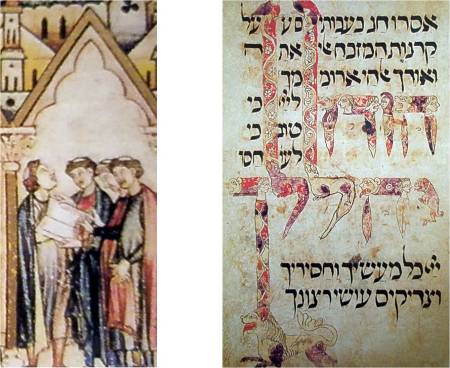 אסרו חג בעבותי
קרנות המזבח א את ה
ואודך ארומ מך
הודו ליי כי
טוב כי
לע חס
יהללו
יי כל מעשיך וחסידיך
וצדיקים עושי רצונך